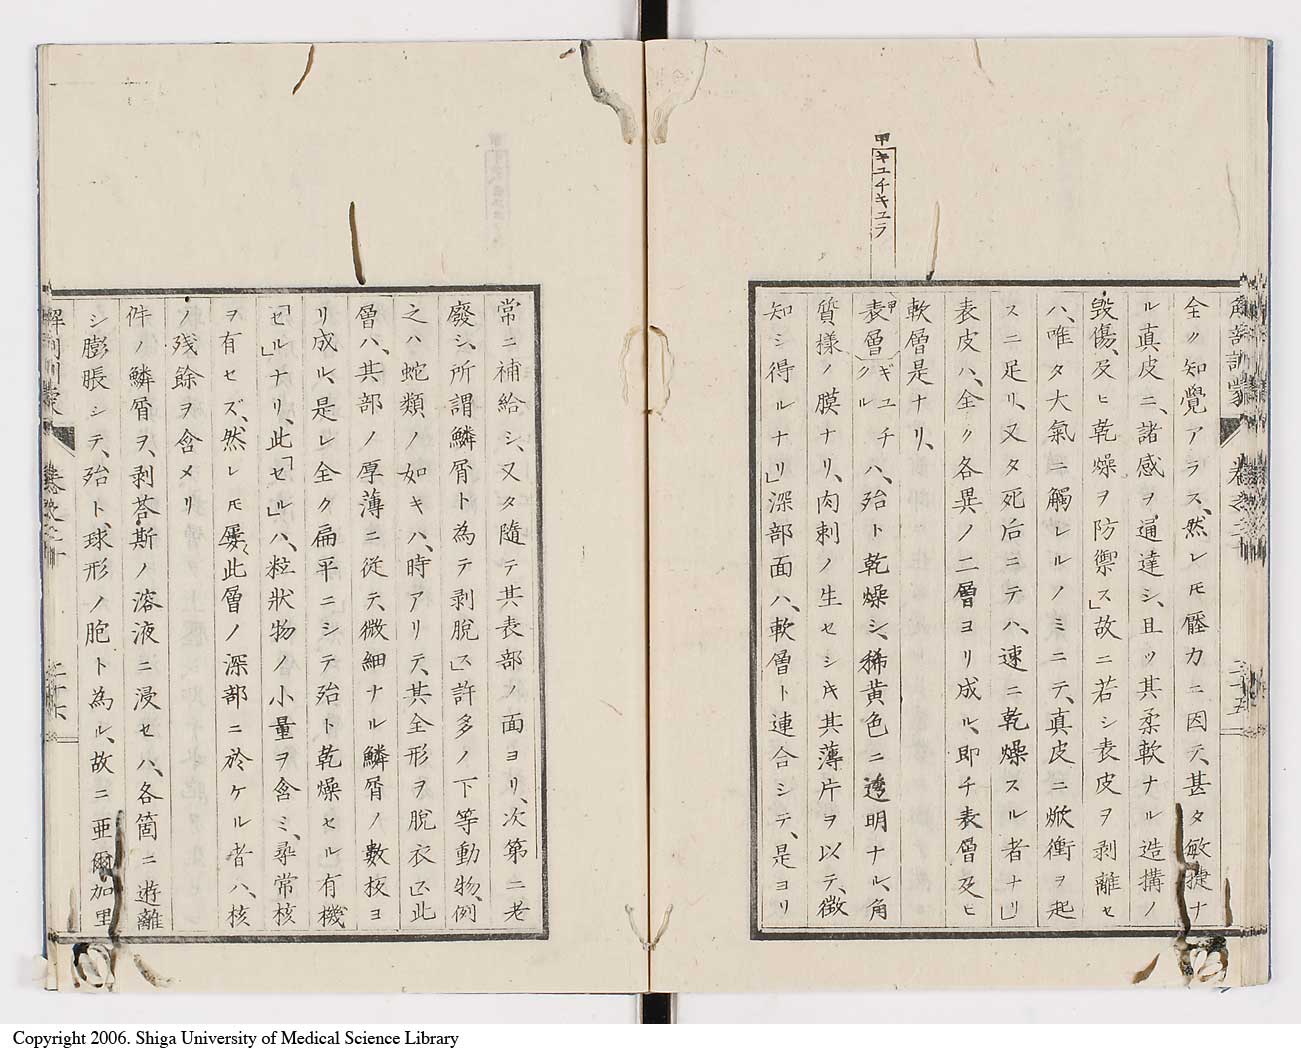 甲キユチキユラ
解剖訓蒙
全ク知覺アラス、然レモ壓力ニ因テ、甚タ敏捷ナ
ル真皮ニ、諸感ヲ、通達シ、且ツ其柔軟ナル造搆ノ
毀傷、及ヒ乾燥ヲ防禦ス」故ニ若シ表皮ヲ剥離セ
ハ、唯タ大氣ニ觸レルノミニテ、真皮ニ焮衝ヲ起
スニ足リ、又タ死后ニテハ、速ニ乾燥スル者ナリ」
表皮ハ、全ク各異ノ二層ヨリ成ル、即チ表層及ヒ
軟層是ナリ、
表層甲ギユチクルハ、殆ト乾燥シ、稀黄色ニ透明ナル、角
質様ノ膜ナリ、肉刺ノ生セシキ其薄片ヲ以テ、徴
知シ得ルナリ」深部面ハ、軟層ト連合シテ、是ヨリ
常ニ補給シ、又タ隨テ其表部ノ面ヨリ、次第ニ老
廢シ、所謂鱗屑ト為テ剥脱ス」許多ノ下等動物、例
之ハ蛇類ノ如キハ、時アリテ、其全形ヲ脱衣ス」此
層ハ、其部ノ厚薄ニ從テ、微細ナル鱗屑ノ數枚ヨ
リ成ル、是レ全ク扁平ニシテ殆ト乾燥セル有機
「セル」ナリ、此「セル」ハ、粒狀物ノ小量ヲ含ミ、尋常核
ヲ有セズ、然レモ屡〻此層ノ深部ニ於ケル者ハ、核
ノ残餘ヲ含メリ
件ノ鱗屑ヲ、剥荅斯ノ溶液ニ浸セハ、各箇ニ遊離
シ膨脹シテ、殆ト、球形ノ胞ト為ル、故ニ亜爾加里
Copyright 2006. Shiga University of Medical Science Library